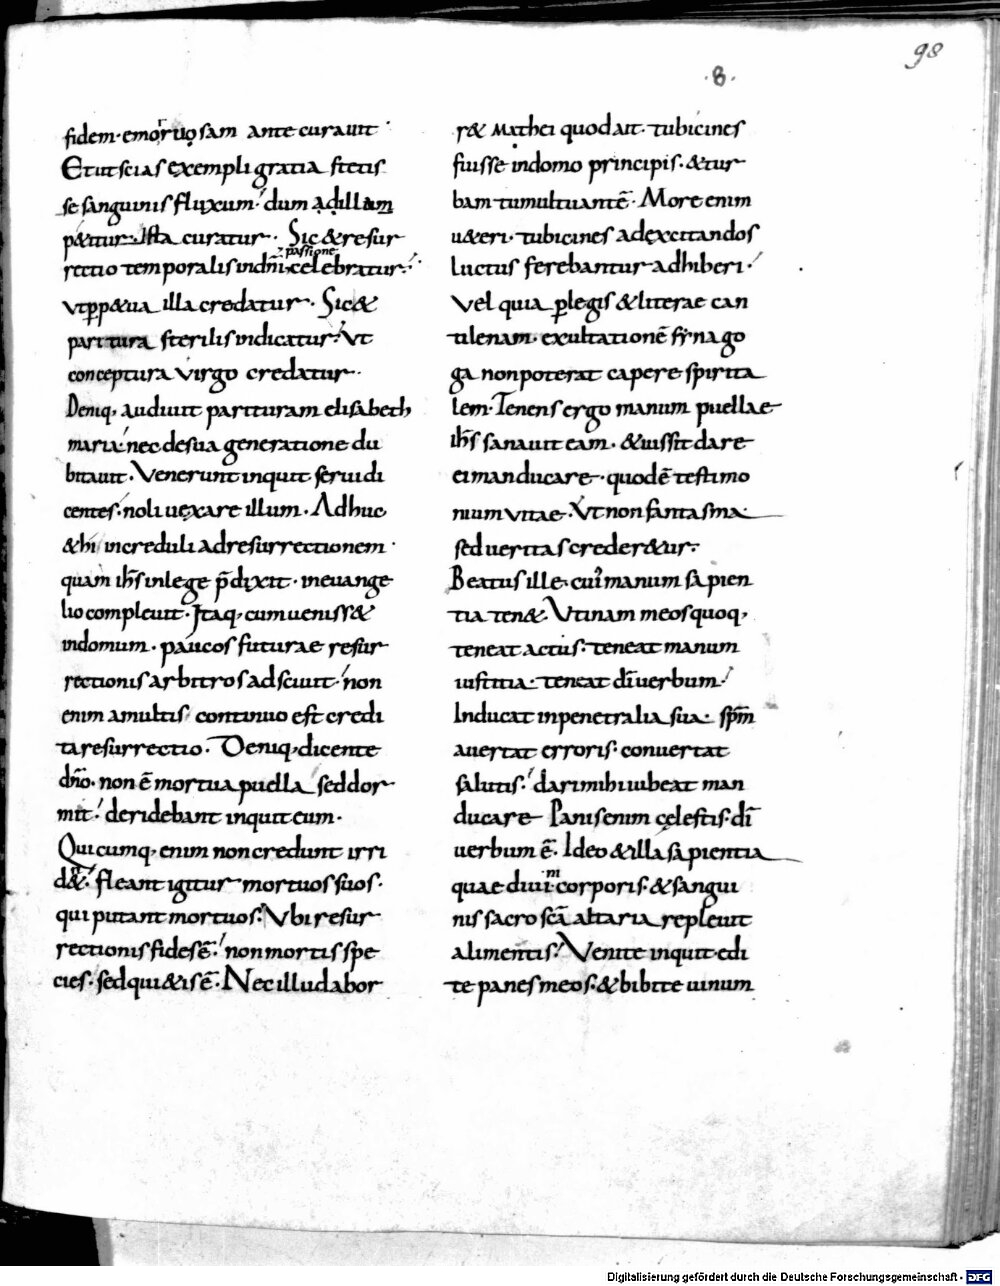 98
·8·
fidem· emorruosam ante curauit·
Et ut scias exempli gratia stetis
se sanguinis fluxum· dum ad illam
p&itur· Ista curatur· Sic & resur
rectio temporalis in dn̄i· passione celebratur·
ut ꝑp&ua illa credatur· Sic &
paritura sterilis indicatur· Ut
conceptura virgo credatur·
Deniq, audiuit parituram elisabeth
maria· nec de sua generatione du
bitauit· Venerunt inquit serui di
centes· noli uexare illum· Adhuc
& hi increduli ad resurrectionem·
quam ih̄s in lege p̄dixit· in euange
lio compleuit· Itaq, cum ueniss&
in domum· paucos futurae resur
rectionis arbitros adsciuit· non
enim a multis continuo est credi
ta resurrectio· Deniq, dicente
dn̄o· non ē mortua puella sed dor
mit· deridebant inquit eum·
Qui cumq, enim non credunt irri
d&· fleant igitur mortuos suos·
qui putant mortuos· Ubi resur
rectionis fides ē· non mortis spe
cies· sed qui&is ē· Nec illud abor
r& Mathei quod ait· tubicines
fuisse in domo principis· & tur
bam tumultuantē· More enim
u&eri· tubicines ad excitandos
luctus ferebantur adhiberi·
Vel quia ꝑ legis & literae can
tilenam· exultationē synago
ga non poterat capere spirita
lem· Tenens ergo manum puellae
ih̄s sanauit eam· & iussit dare
ei manducare· quod ē testimo
nium vitae· Ut non fantasma
sed ueritas creder&ur·
Beatus ille· cui' manum sapien
tia ten&· Utinam meos quoq,
teneat actus· teneat manum
iustitia· teneat dī uerbum·
Inducat in penetralia sua· sp̄m
auertat erroris· conuertat
salutis· dari mihi iubeat man
ducare Panis enim celestis· dī
uerbum ē· Ideo & illa sapientia
quae diuim· corporis· & sangui
nis sacro scā altaria repleuit
alimentis· Venite inquit· edi
te panes meos· & bibite uinum
Digitalisierung gefördert durch die Deutsche Forschungsgemeinschaft - DFG